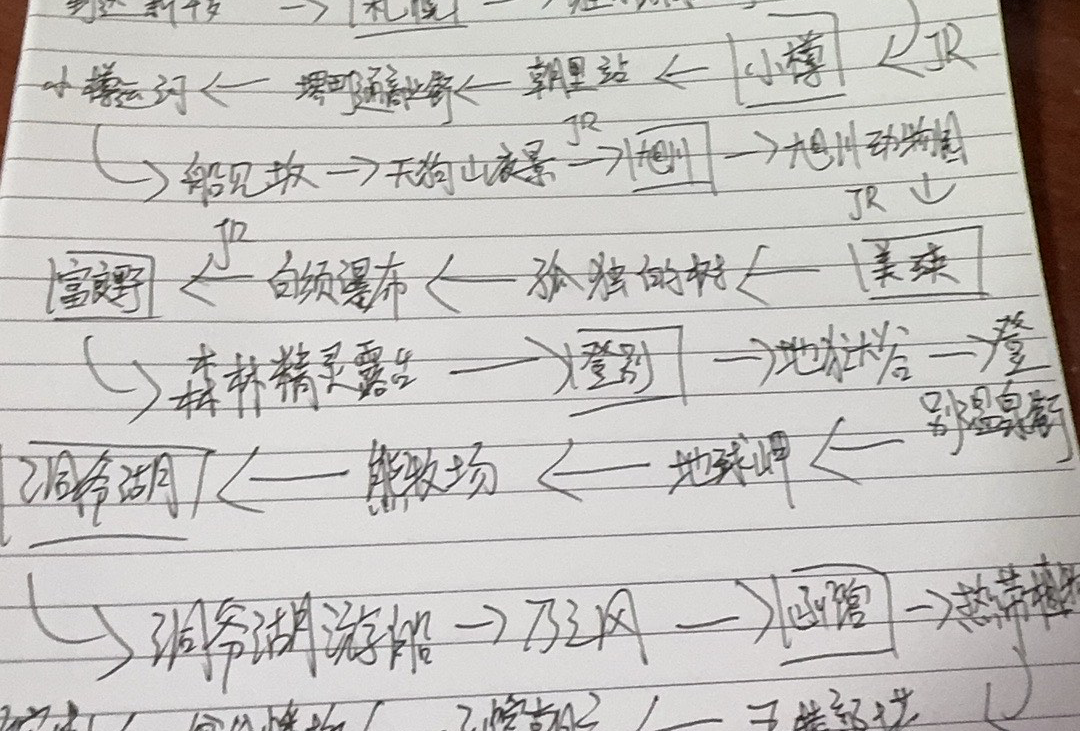 → 札幌 →
小樽运河 ← 堺町通商业街 ← 朝里站 ← 小樽 ← JR
→ 船见坂 → 天狗山夜景 JR → 旭川 → 旭川动物园
JR ↓
富良野 ← JR 白须瀑布 ← 孤独的树 ← 美瑛
→ 森林精灵露台 → 登别 → 地狱谷 → 登
别温泉街
洞爷湖 ← 熊牧场 ← 地球岬 ←
→ 洞爷湖游船 → 乃之风 → 函馆 → 热带植物